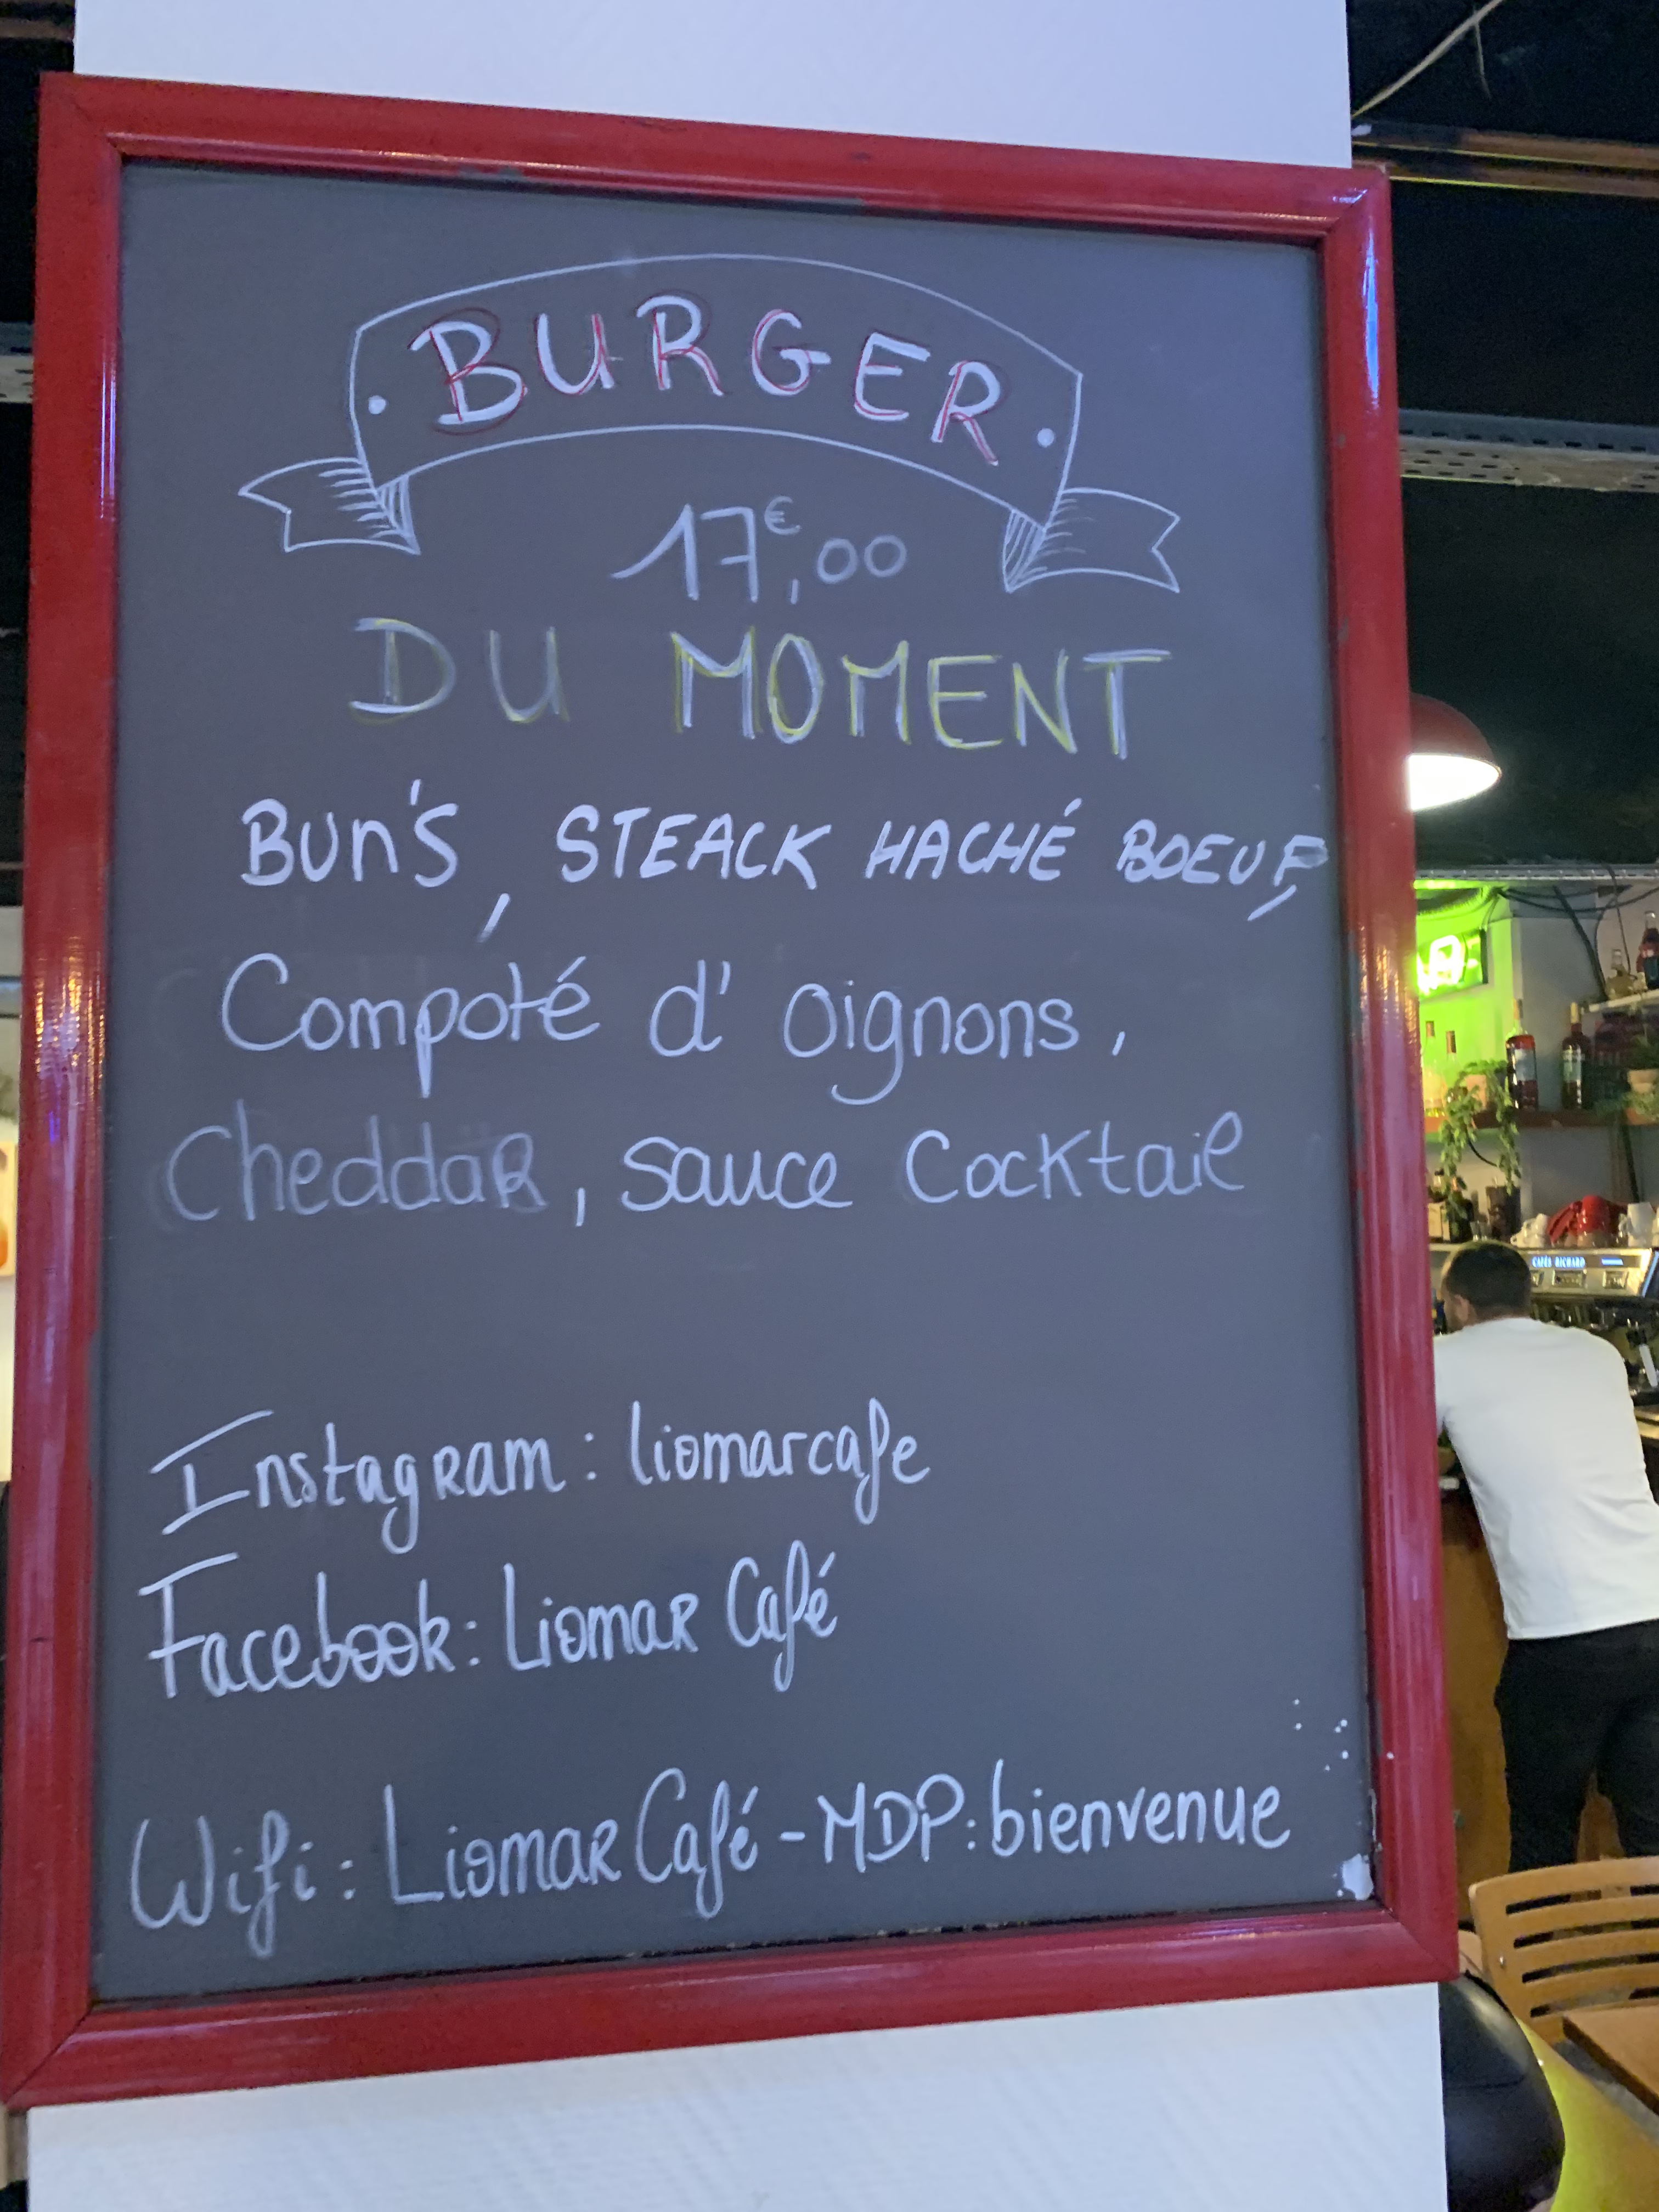 BURGER
17€,00
DU MOMENT
Bun's, STEACK HACHÉ BOEUF,
Compoté d' oignons,
Cheddar, sauce Cocktail
Instagram : liomarcafe
Facebook : Liomar Café
Wifi : Liomar Café - MDP : bienvenue
CAFÉS RICHARD